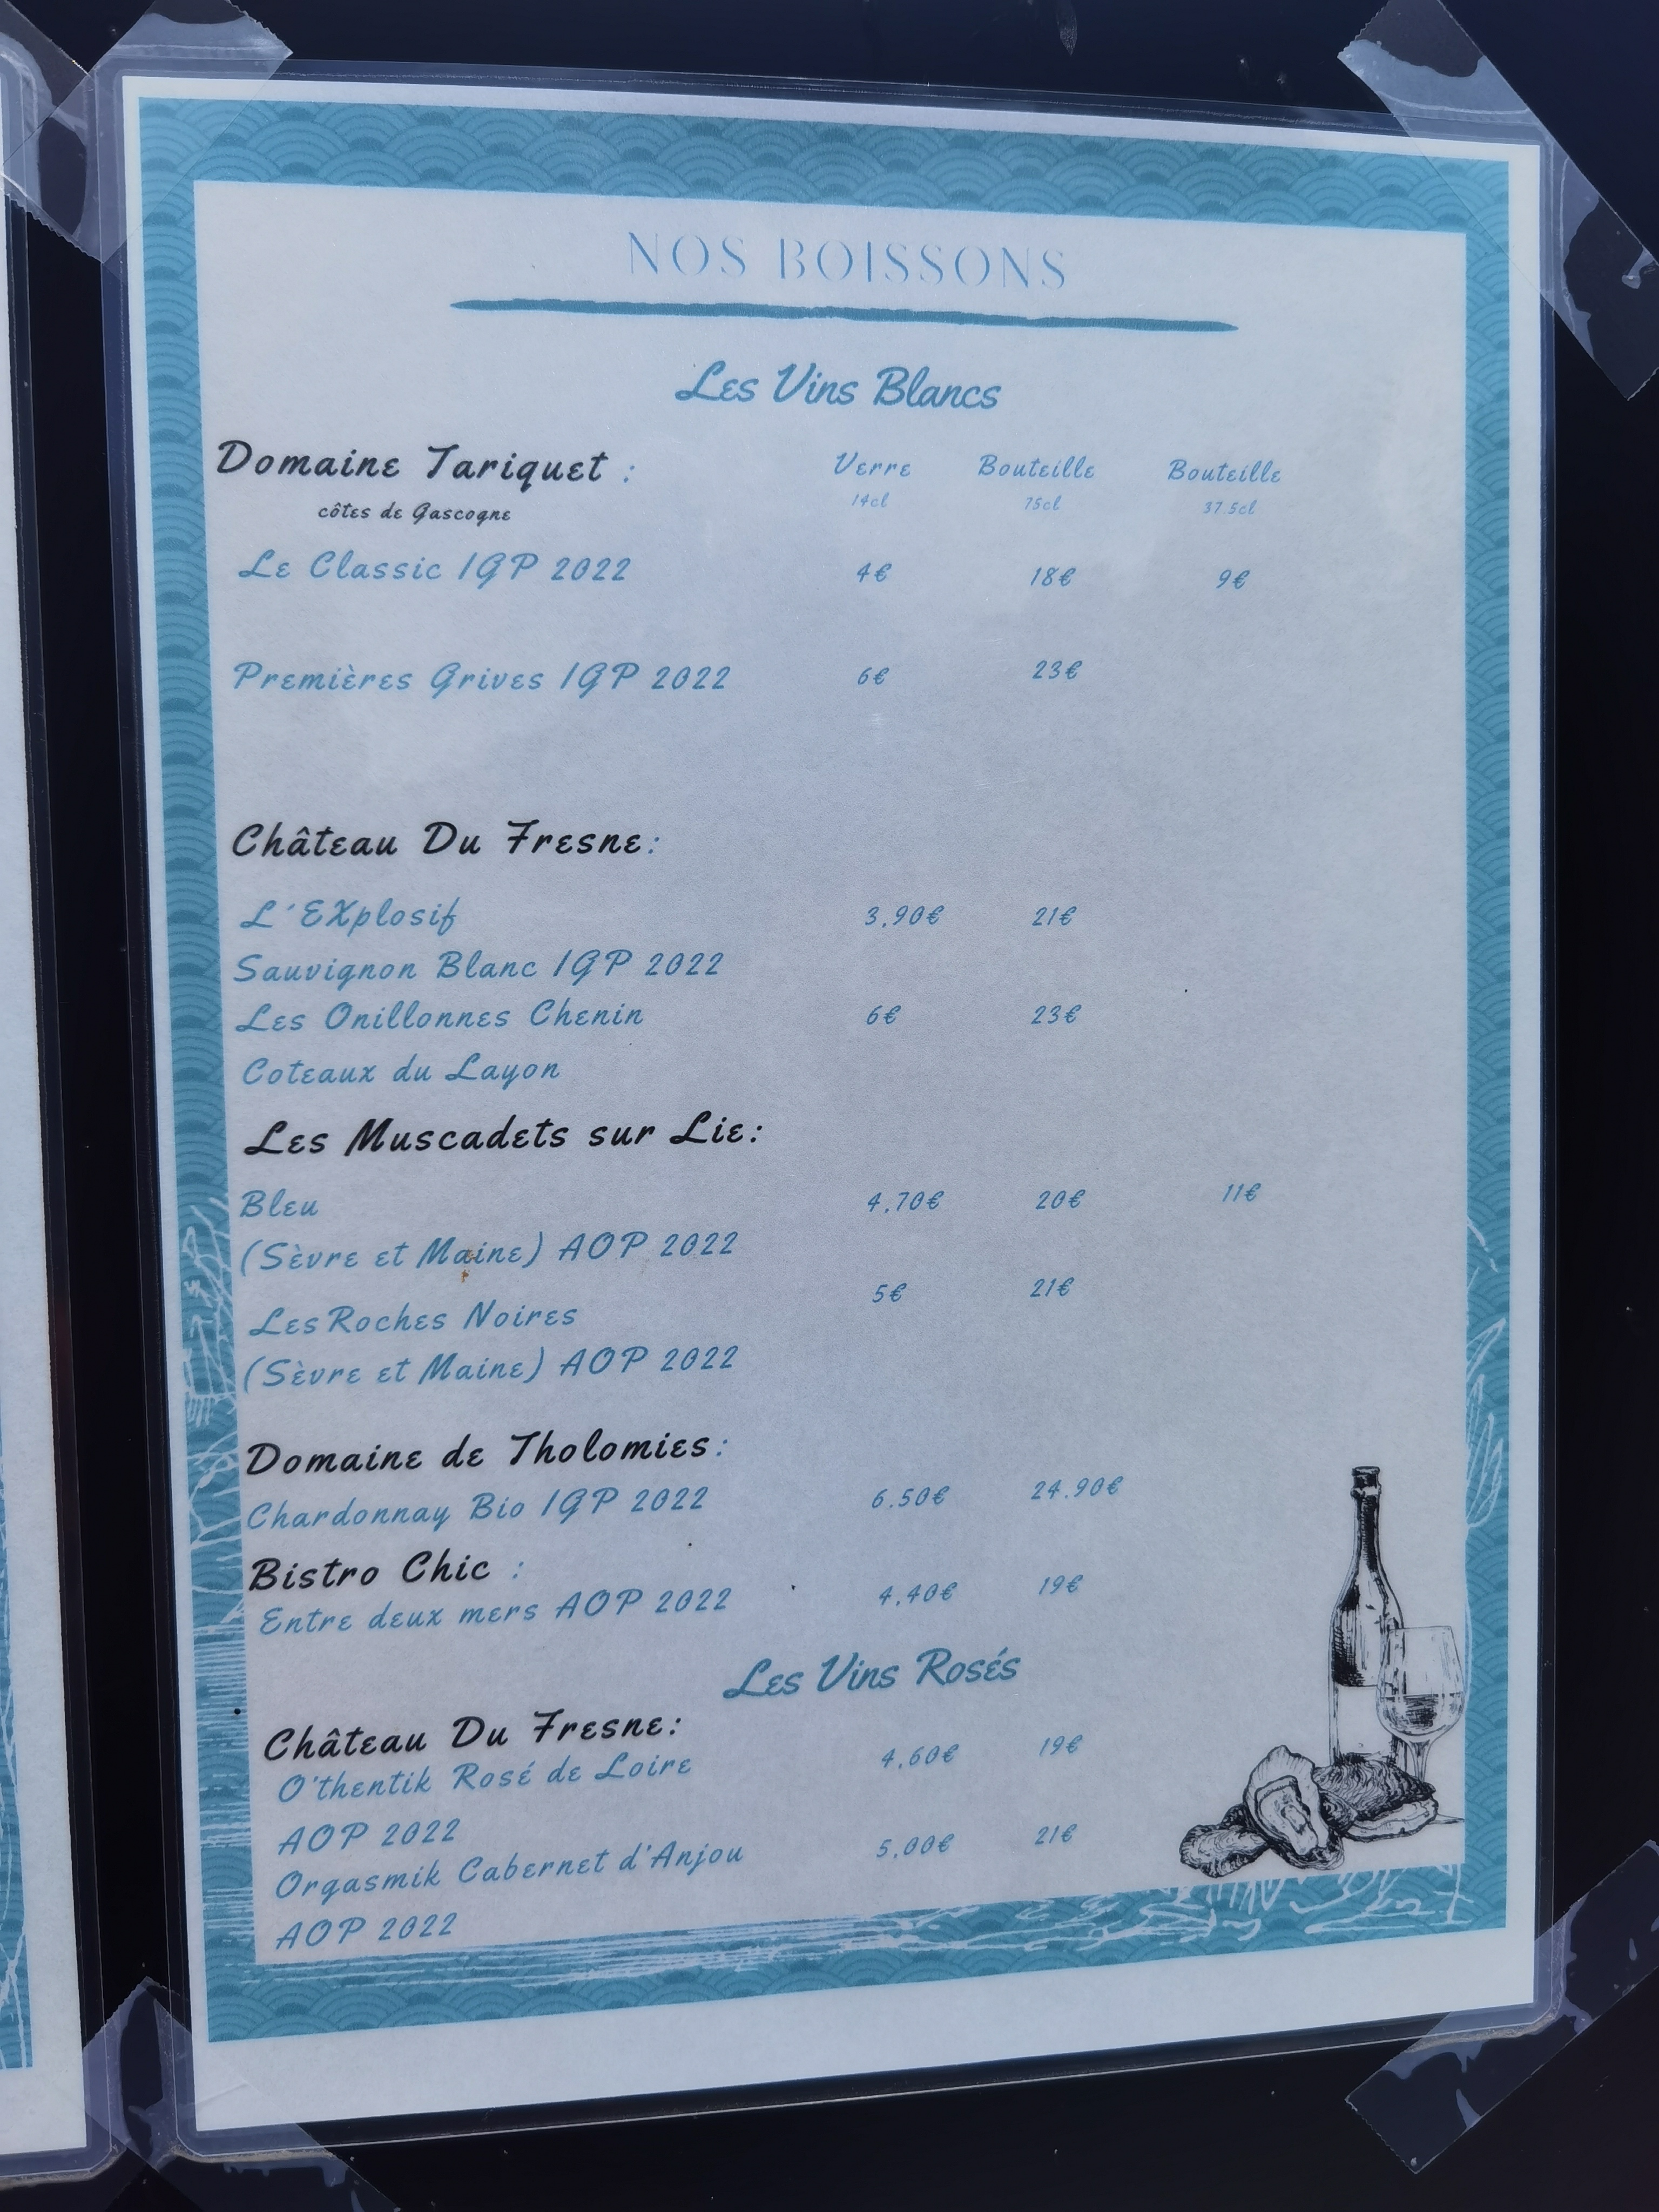 NOS BOISSONS
Les Vins Blancs
Domaine Tariquet : Verre Bouteille Bouteille
côtes de Gascogne 14cl 75cl 37.5cl
Le Classic IGP 2022 4€ 18€ 9€
Premières Grives IGP 2022 6€ 23€
Château Du Fresne:
L'EXplosif 3,90€ 21€
Sauvignon Blanc IGP 2022
Les Onillonnes Chenin 6€ 23€
Coteaux du Layon
Les Muscadets sur Lie:
Bleu 4,70€ 20€ 11€
(Sèvre et Maine) AOP 2022
5€ 21€
Les Roches Noires
(Sèvre et Maine) AOP 2022
Domaine de Tholomies:
Chardonnay Bio IGP 2022 6.50€ 24.90€
Bistro Chic :
Entre deux mers AOP 2022 4,40€ 19€
Les Vins Rosés
Château Du Fresne:
O'thentik Rosé de Loire 4,60€ 19€
AOP 2022
Orgasmik Cabernet d'Anjou 5,00€ 21€
AOP 2022